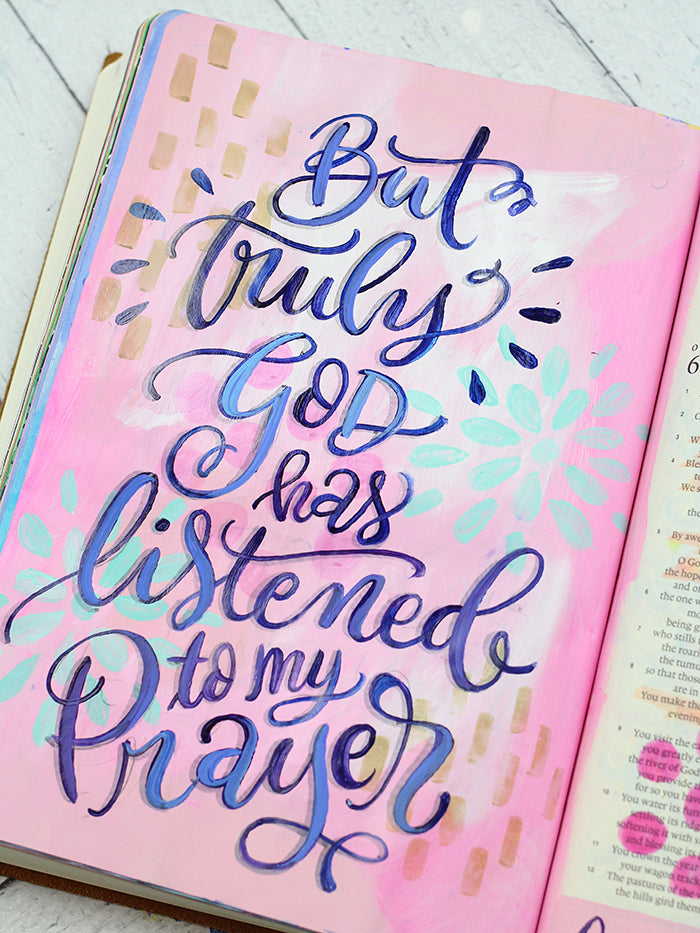 But
truly
GOD
has
listened
to my
Prayer
6
1
2
3
4
to
We
the
5 By
the
and
6 the one
being
7 who stills
the
the
8 so that those
are in
You make the
evening
9 You visit the
you greatly
the river of God
you provide
for so you
10 You water its
settling its
softening it with
and blessing its
11 You crown the year
your wagon
12 The pastures of the
the hills gird